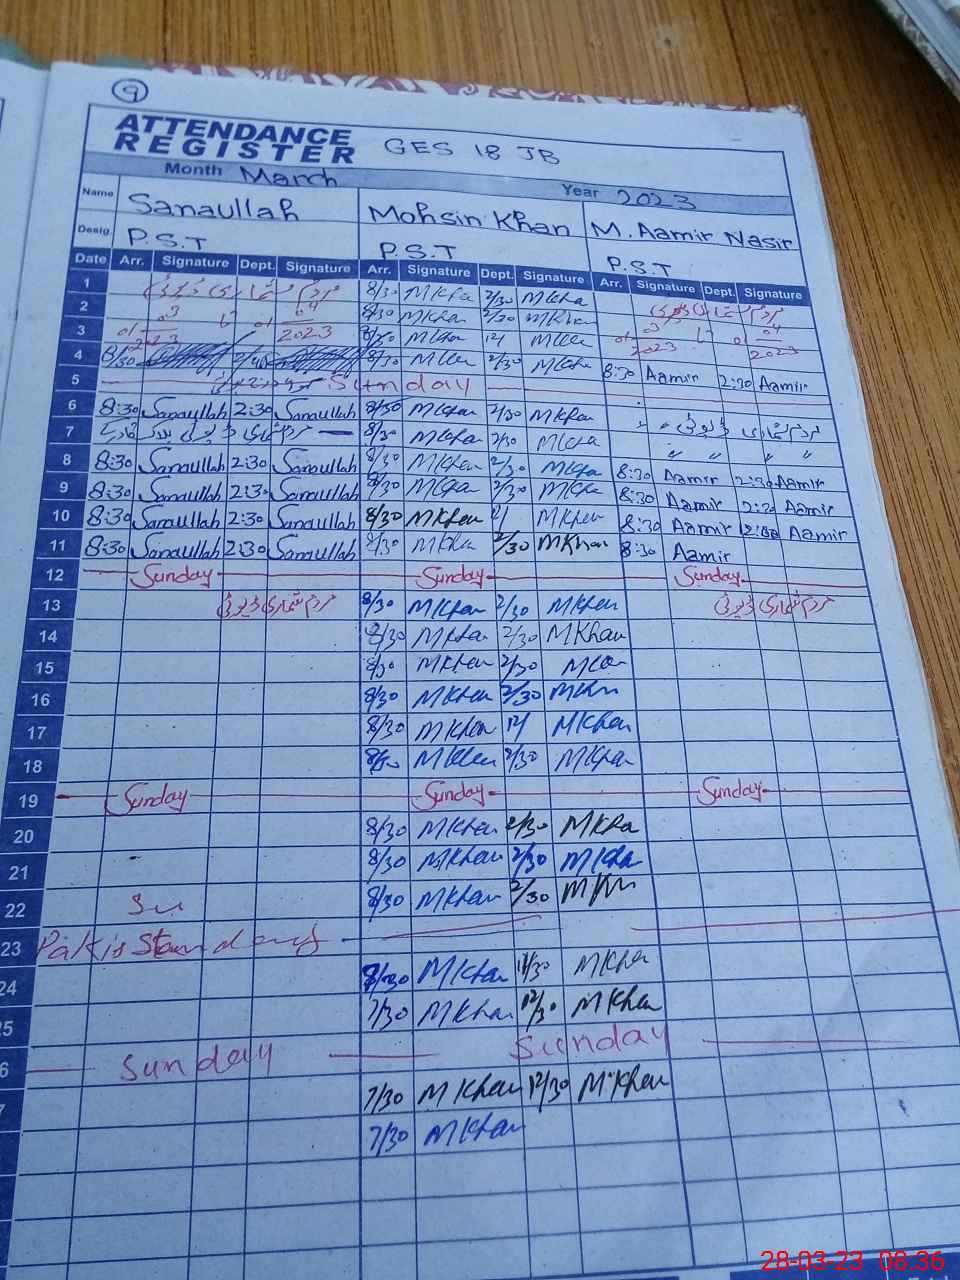 9
ATTENDANCE
REGISTER GES 18 JB
Month March Year 2023
Name Sanaullah Mohsin Khan M. Aamir Nasir
Desig. P.S.T P.S.T P.S.T
Date Arr. Signature Dept. Signature Arr. Signature Dept. Signature Arr. Signature Dept. Signature
1 مردم شماری ڈیوٹی 8/30 MKha 2/30 MKha مردم شماری ڈیوٹی
2 8/30 MKhan 2/30 MKhan
3 2023 8/30 MKhan 12/ MKhan 2023 2023
4 8/30 8/30 MKhan 2/30 MKha 8:30 Aamir 2:30 Aamir
5 Sunday
6 8:30 Sanaullah 2:30 Sanaullah 8/30 MKhan 2/30 MKhan مردم شماری ڈیوٹی
7 مردم شماری ڈیوٹی 8/30 MKhan 2/30 MKha " " " "
8 8:30 Sanaullah 2:30 Sanaullah 8/30 MKhan 2/30 MKha 8:30 Aamir 2:30 Aamir
9 8:30 Sanaullah 2:30 Sanaullah 8/30 MKhan 2/30 MKha 8:30 Aamir 2:30 Aamir
10 8:30 Sanaullah 2:30 Sanaullah 8/30 MKhan MKhan 8:30 Aamir Aamir
11 8:30 Sanaullah 2:30 Sanaullah 8/30 MKhan 2/30 MKhan 8:30 Aamir
12 Sunday Sunday Sunday
13 مردم شماری ڈیوٹی 8/30 MKhan 2/30 MKhan مردم شماری ڈیوٹی
14 8/30 MKhan 2/30 MKhan
15 8/30 MKhan 2/30 MKhan
16 8/30 MKhan 2/30 MKhan
17 8/30 MKhan 12/ MKhan
18 8/30 MKhan 2/30 MKhan
19 Sunday Sunday Sunday
20 8/30 MKhan 2/30 MKha
21 8/30 MKhan 2/30 MKha
22 Su 8/30 MKhan 2/30 MKhan
23 Pakistan day
24 8/30 MKhan 12/30 MKhan
25 7/30 MKhan 12/30 MKhan
6 Sunday Sunday
7 7/30 MKhan 12/30 MKhan
7/30 MKhan
28-03-23 08:36